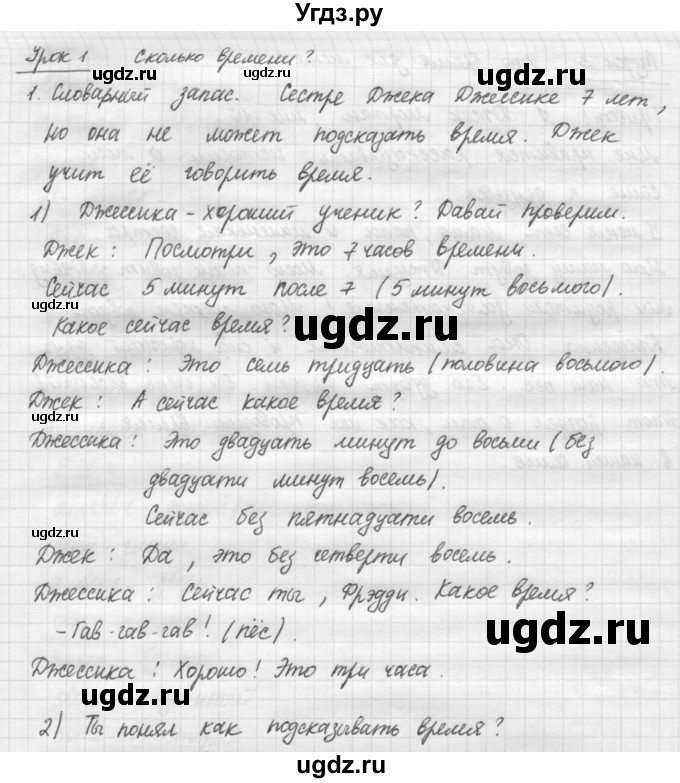 Угдз.ру
Урок 1 Сколько времени?
1. Словарный запас. Сестре Джека Джессике 7 лет,
но она не может подсказать время. Джек
учит её говорить время.
1) Джессика - хороший ученик? Давай проверим.
Джек: Посмотри, это 7 часов времени.
Сейчас 5 минут после 7 (5 минут восьмого).
Какое сейчас время?
Джессика: Это семь тридцать (половина восьмого).
Джек: А сейчас какое время?
Джессика: Это двадцать минут до восьми (без
двадцати минут восемь).
Сейчас без пятнадцати восемь.
Джек: Да, это без четверти восемь.
Джессика: Сейчас ты, Фрэдди. Какое время?
- Гав-гав-гав! (пёс).
Джессика: Хорошо! Это три часа.
2) Ты понял как подсказывать время?
ugdz.ru
ugdz.ru
ugdz.ru
ugdz.ru
ugdz.ru
ugdz.ru
ugdz.ru
ugdz.ru
ugdz.ru
ugdz.ru
ugdz.ru